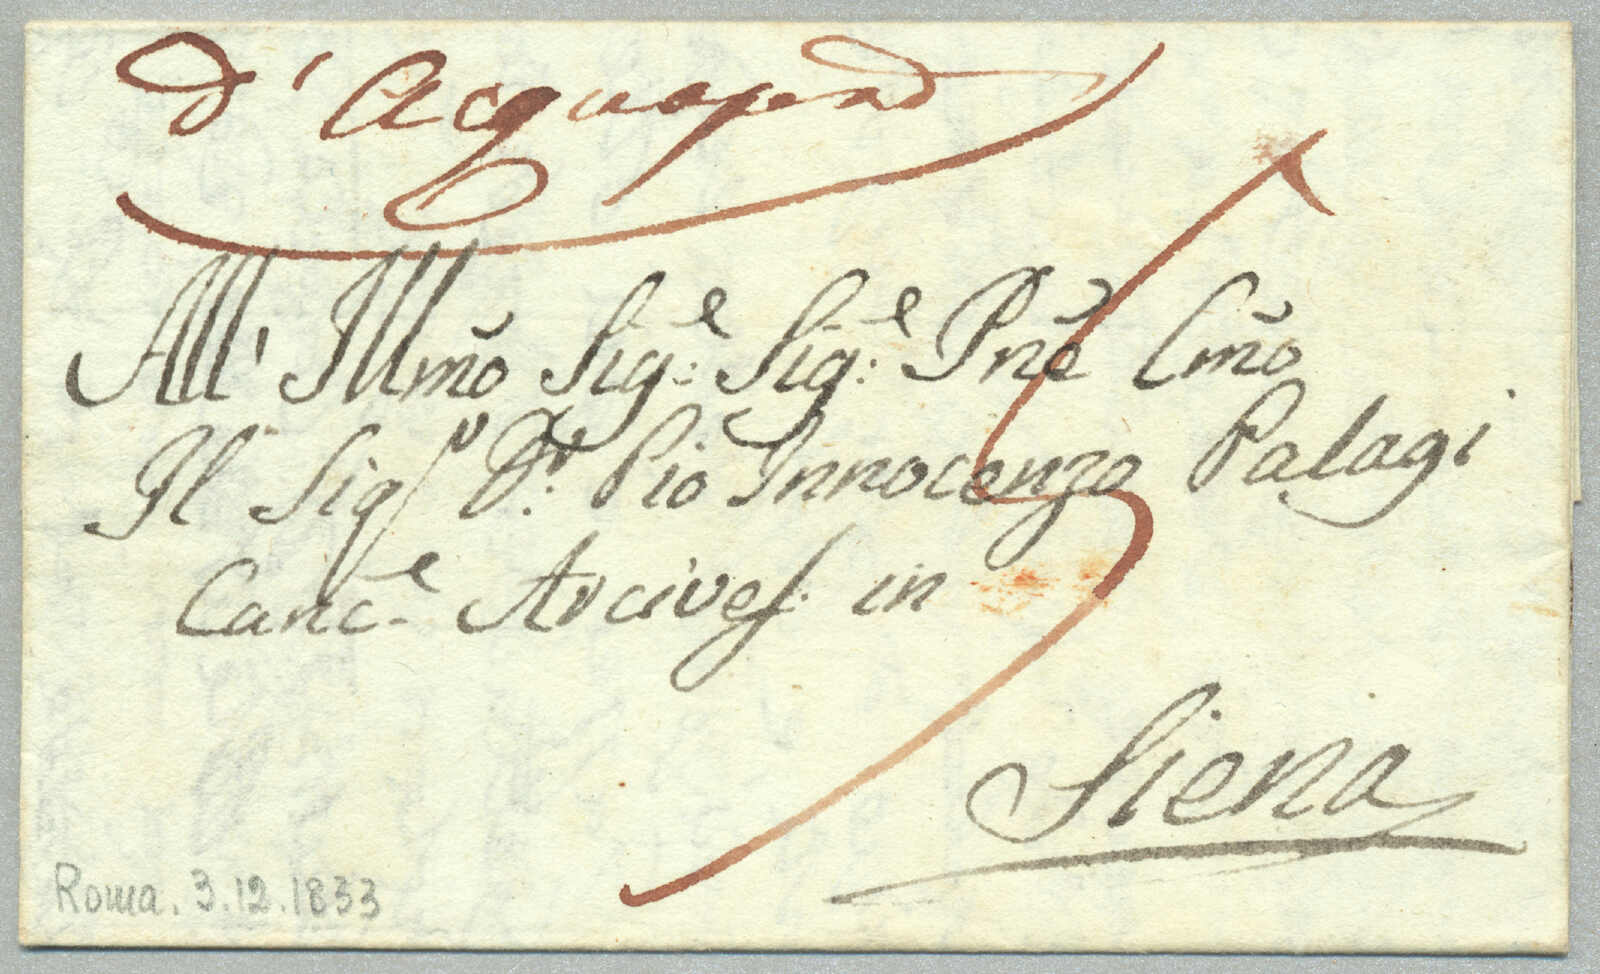 d'Acquapend
All' Illmõ Sig.e Sig.e Pñe Cmõ
Il Sig D.r Pio Innocenzo Palagi
Canc.e Arcives. in
Siena
Roma. 3.12.1833